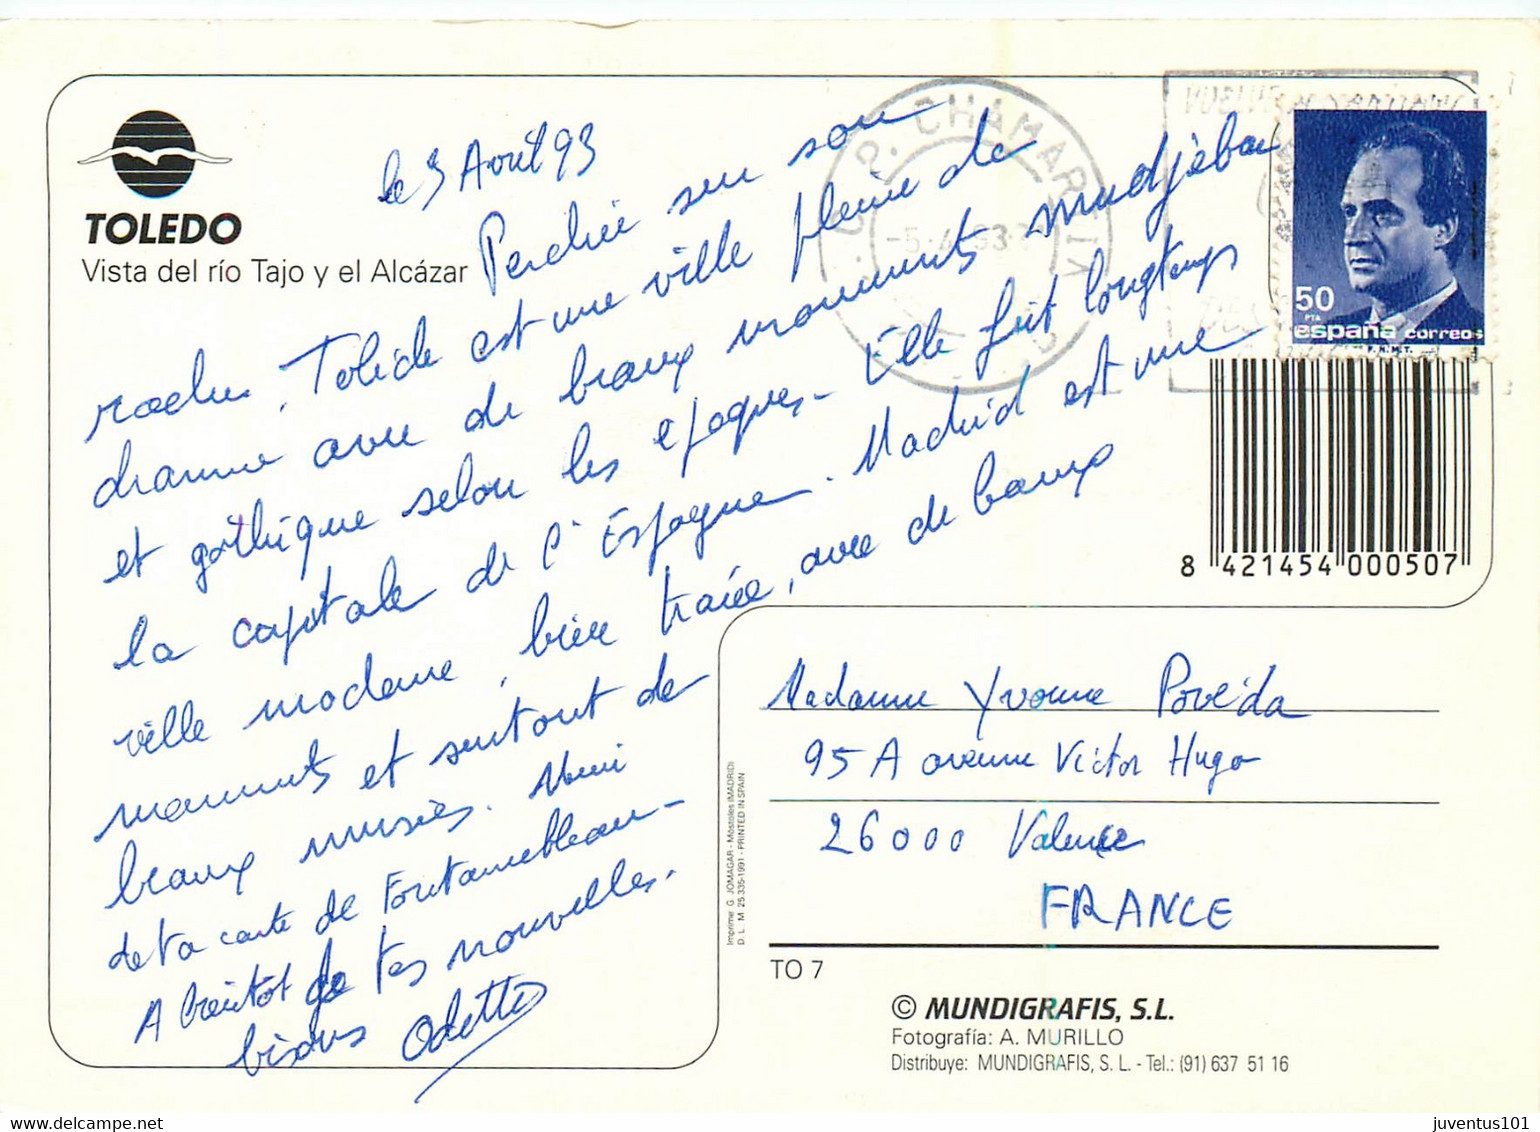 TOLEDO
Vista del río Tajo y el Alcázar
le 3 Avril 93
Perchée sur son
rocher, Tolède est une ville pleine de
charme avec de beaux monuments mudjébar
et gothique selon les époques - Ville fut longtemps
la capitale de l'Espagne. Madrid est une
ville moderne, bien tracée, avec de beaux
monuments et surtout de
beaux musées. Merci
de ta carte de Fontainebleau -
A bientot de tes nouvelles.
bisous Odette
CHAMARTIN
-5. 93
50
PTA
españa correos
F.N.M.T.
8 421454 000507
Madame Yvonne Povéda
95 A avenue Victor Hugo
26000 Valence
FRANCE
Imprime G. JOMAGAR - Móstoles (MADRID)
D. L. M. 25.335-1991 - PRINTED IN SPAIN
TO 7
© MUNDIGRAFIS, S.L.
Fotografía: A. MURILLO
Distribuye: MUNDIGRAFIS, S. L. - Tel.: (91) 637 51 16
juventus101